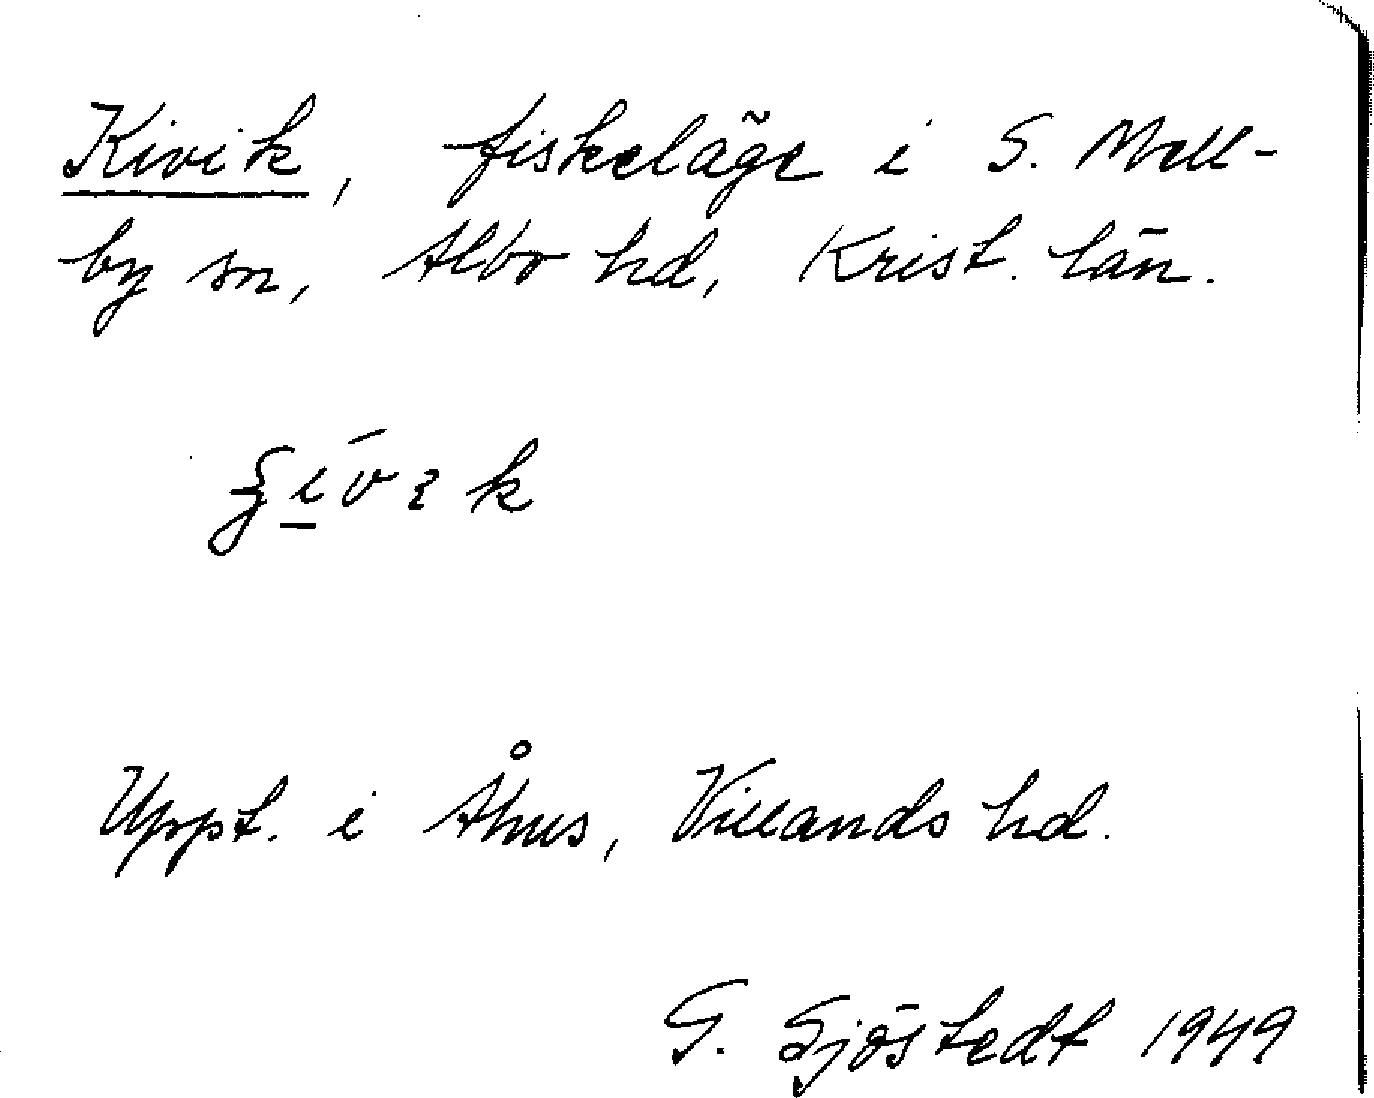 Kivik, fiskeläge i S. Mell-
by sn, Albo hd, Krist. län.
Uppt. i Åhus, Villands hd.
G. Sjöstedt 1949